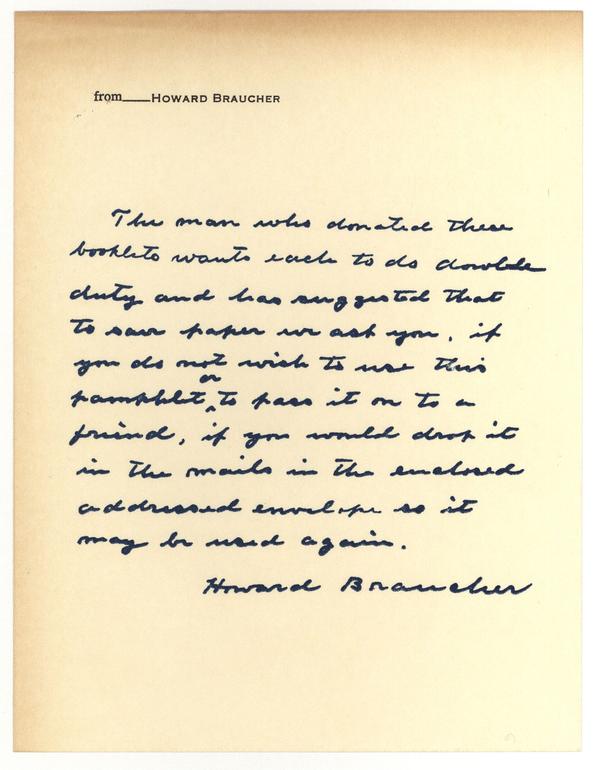 from____HOWARD BRAUCHER
The man who donated these
booklets wants each to do double
duty and has suggested that
to save paper we ask you, if
you do not wish to use this
or
pamphlet ‸ to pass it on to a
friend, if you would drop it
in the mails in the enclosed
addressed envelope so it
may be used again.
Howard Braucher